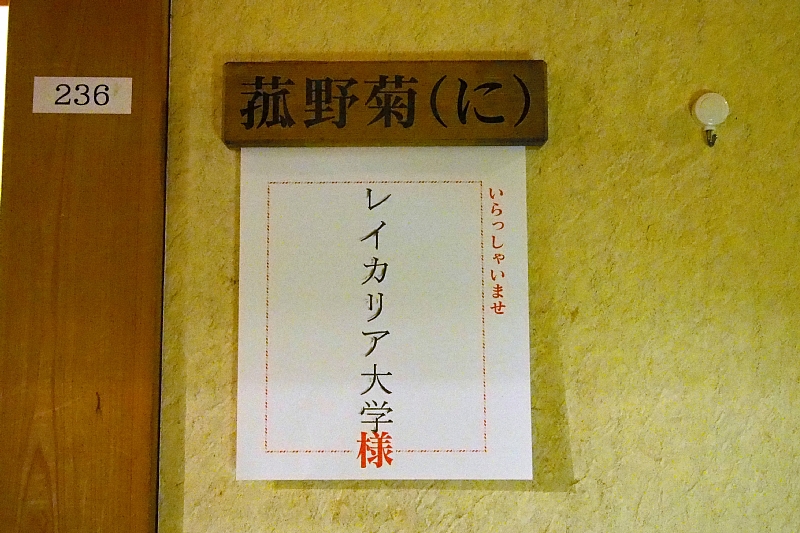 236
菰野菊(に)
いらっしゃいませ
レイカリア大学
様